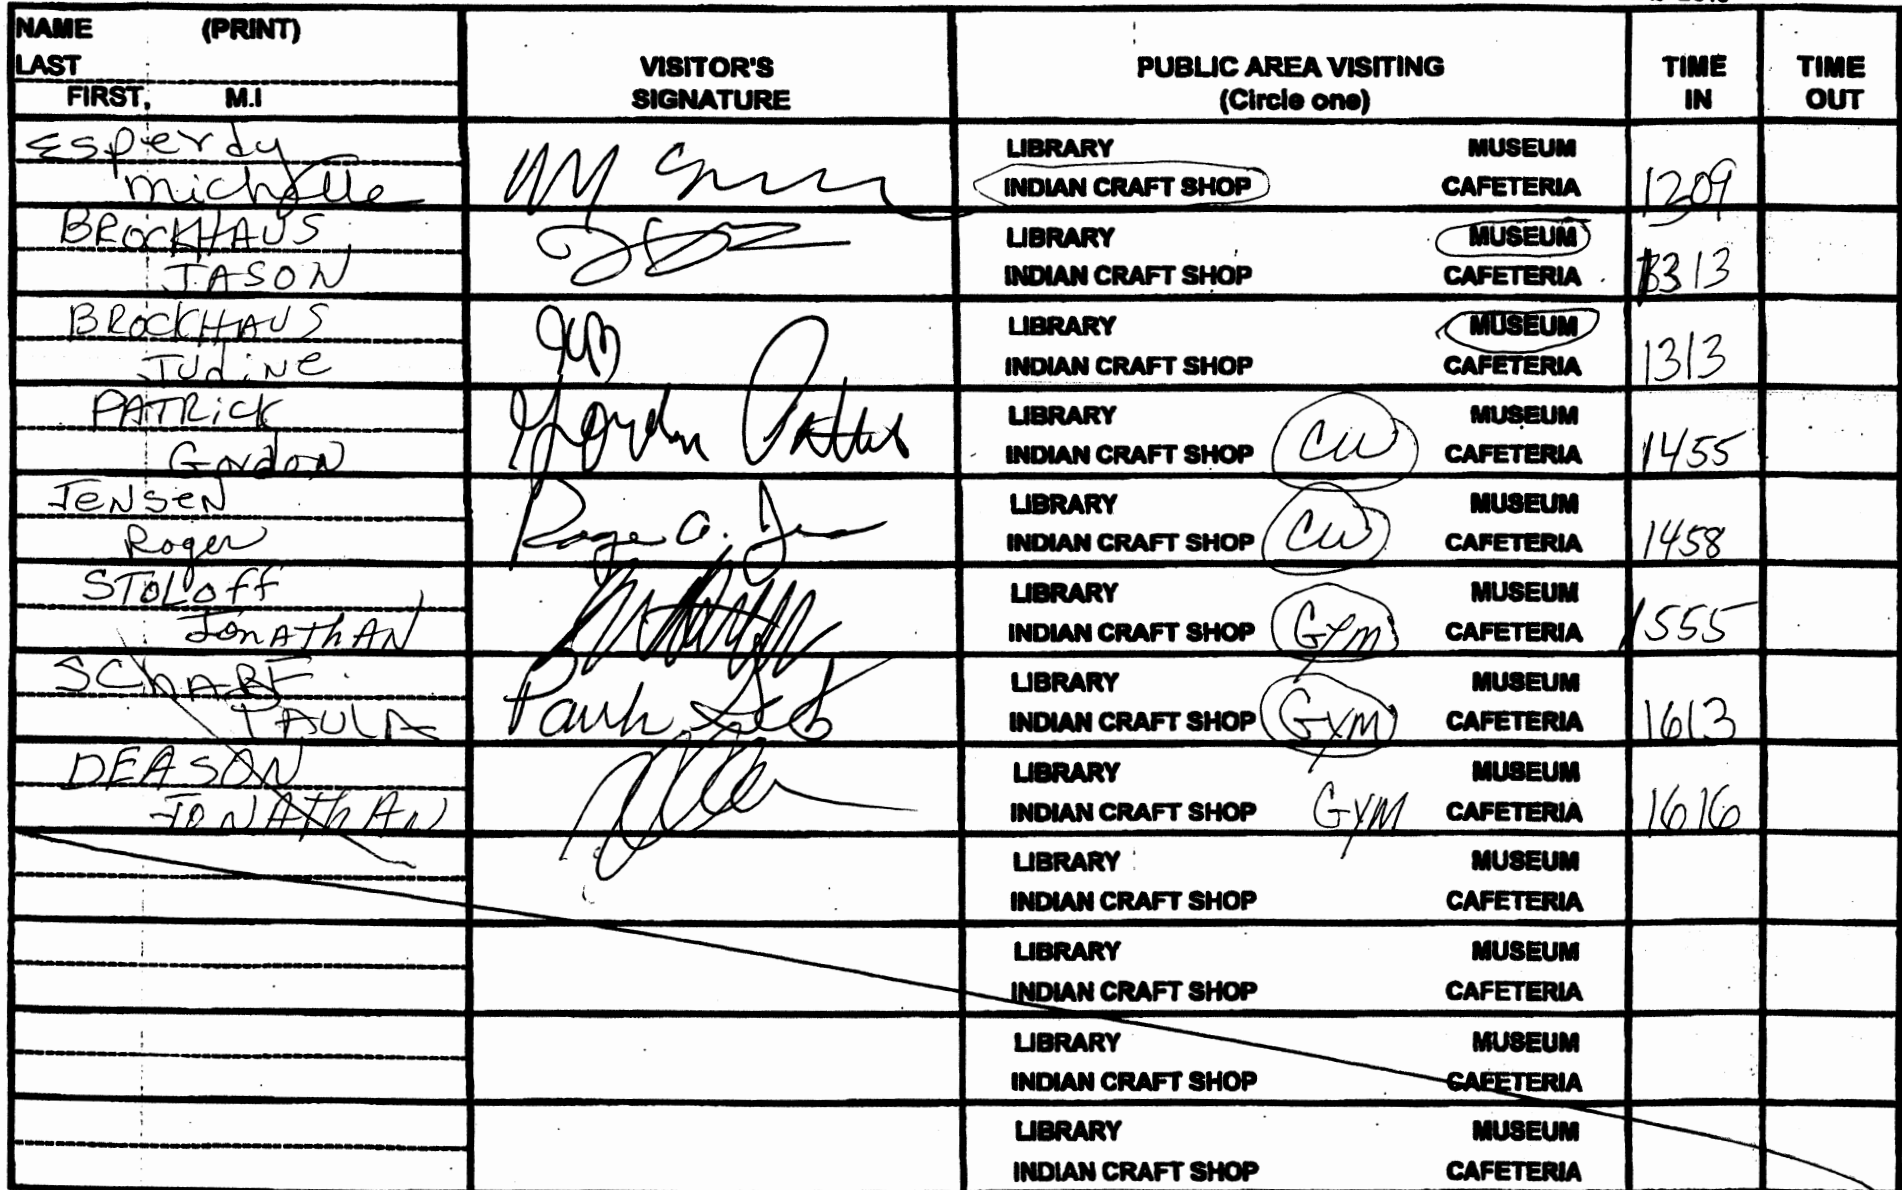 NAME (PRINT)
LAST
FIRST, M.I
VISITOR'S
SIGNATURE
PUBLIC AREA VISITING
(Circle one)
TIME
IN
TIME
OUT
Esperdy
Michelle
LIBRARY MUSEUM
INDIAN CRAFT SHOP CAFETERIA
1209
BROCKHAUS
JASON
LIBRARY MUSEUM
INDIAN CRAFT SHOP CAFETERIA
1313
BROCKHAUS
Judine
LIBRARY MUSEUM
INDIAN CRAFT SHOP CAFETERIA
1313
PATRICK
Gordon
Gordon
LIBRARY MUSEUM
INDIAN CRAFT SHOP CW CAFETERIA
1455
JENSEN
Roger
Roger A. Jensen
LIBRARY MUSEUM
INDIAN CRAFT SHOP CW CAFETERIA
1458
STOLOFF
JONATHAN
LIBRARY MUSEUM
INDIAN CRAFT SHOP GYM CAFETERIA
1555
SCHARF
PAULA
Paula
LIBRARY MUSEUM
INDIAN CRAFT SHOP GYM CAFETERIA
1613
DEASON
JONATHAN
LIBRARY MUSEUM
INDIAN CRAFT SHOP GYM CAFETERIA
1616
LIBRARY MUSEUM
INDIAN CRAFT SHOP CAFETERIA
LIBRARY MUSEUM
INDIAN CRAFT SHOP CAFETERIA
LIBRARY MUSEUM
INDIAN CRAFT SHOP CAFETERIA
LIBRARY MUSEUM
INDIAN CRAFT SHOP CAFETERIA